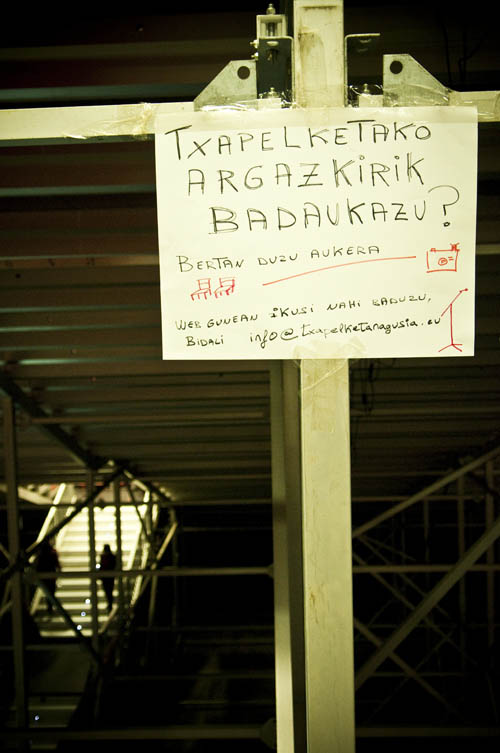 TXAPELKETAKO
ARGAZKIRIK
BADAUKAZU?
BERTAN DUZU AUKERA
WEB GUNEAN IKUSI NAHI BADUZU,
BIDALI info@txapelketanagusia.eu